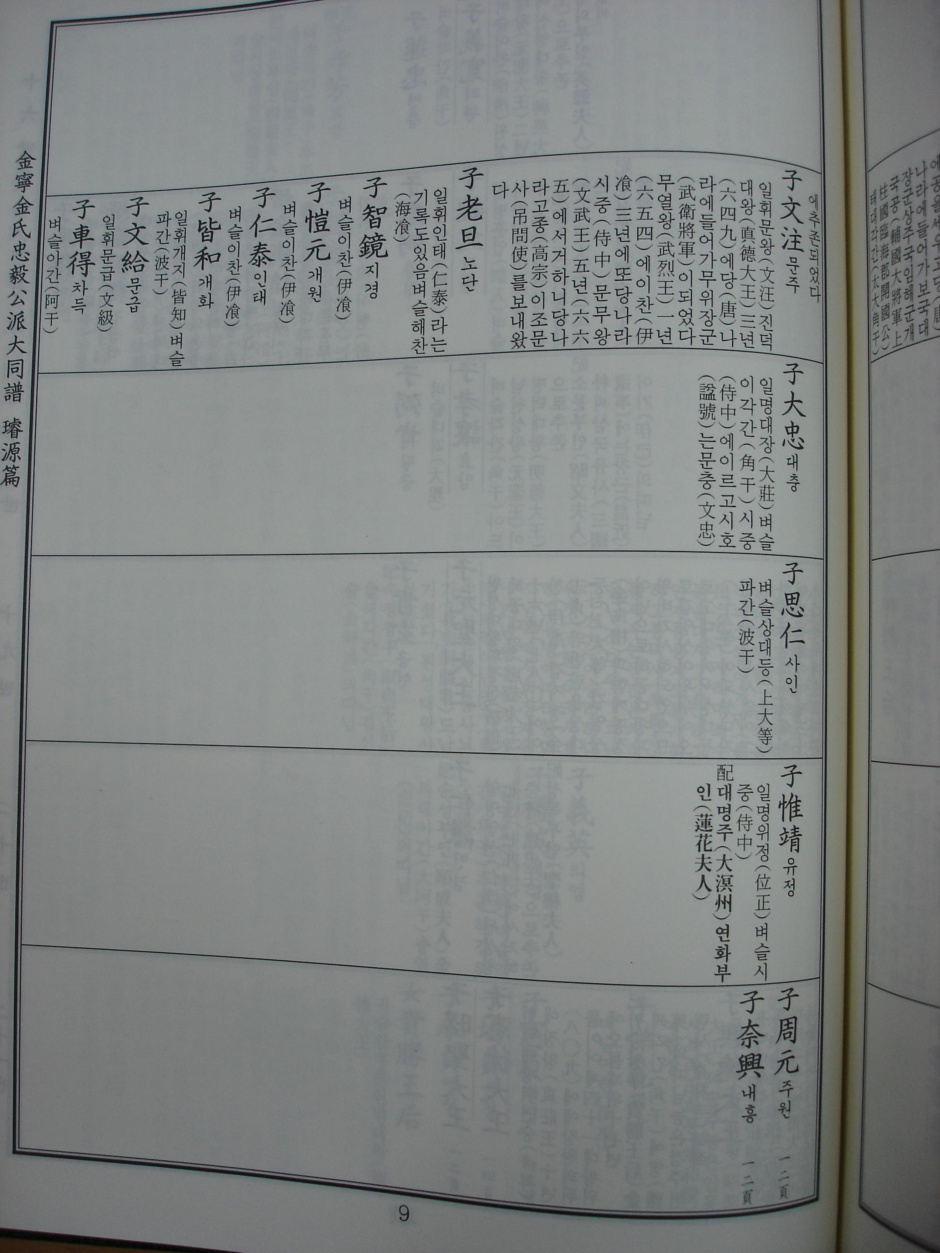 에추존되었다
子文注 문주
일휘문왕(文汪)진덕
대왕(真德大王)三年
(六四九)에당(唐)나
라에들어가무위장군
(武衛將軍)이되었다
무열왕(武烈王)一年
(六五四)에이찬(伊
飡)三年에또당나라
시중(侍中)문무왕
(文武王)五年(六六
五)에서거하니당나
라고종(高宗)이조문
사(吊問使)를보내왔
다
子老旦 노단
일휘인태(仁泰)라는
기록도있음벼슬해찬
(海飡)
子智鏡 지경
벼슬이찬(伊飡)
子愷元 개원
벼슬이찬(伊飡)
子仁泰 인태
벼슬이찬(伊飡)
子皆和 개화
일휘개지(皆知)벼슬
파간(波干)
子文給 문급
일휘문급(文級)
子車得 차득
벼슬아간(阿干)
子大忠 대충
일명대장(大莊)벼슬
이각간(角干)시중
(侍中)에이르고시호
(諡號)는문충(文忠)
子思仁 사인
벼슬상대등(上大等)
파간(波干)
子惟靖 유정
일명위정(位正)벼슬시
중(侍中)
配대명주(大溟州)연화부
인(蓮花夫人)
子周元 주원 一二頁
子奈興 내흥 一二頁
金寧金氏忠毅公派大同譜 璿源篇
9
나라에들어가보국대
장군상주국임해군개
국공(輔國大將軍上
柱國臨海郡開國公)
태대각간(太大角干)